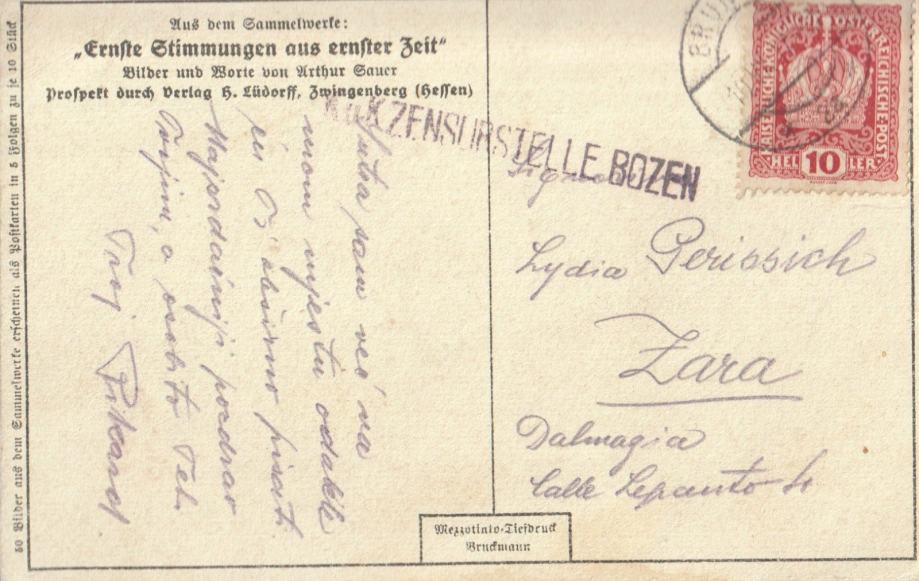 Aus dem Sammelwerke:
„Ernste Stimmungen aus ernster Zeit“
Bilder und Worte von Arthur Sauer
Prospekt durch Verlag H. Lüdorff, Zwingenberg (Hessen)
50 Bilder aus dem Sammelwerke erscheinen als Postkarten in 5 Folgen zu je 10 Stück
K.u.K. ZENSURSTELLE BOZEN
BRUN
KAISERLICHE KÖNIGLICHE ÖSTERREICHISCHE POST
HELLER
10
Jutra sam već na
mom mjestu odakle
ću ti pisati.
pozdrav
a osobito Tebi
Tvoj Rikard
Lydia Perissich
Zara
Dalmazia
Calle Lepanto
Mezzotinto-Tiefdruck
Bruckmann